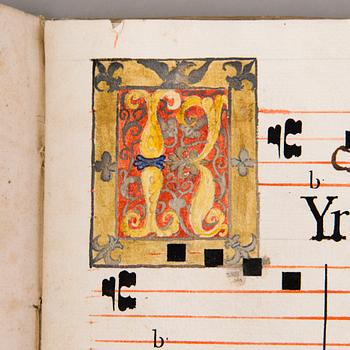 b
K
Yr
b